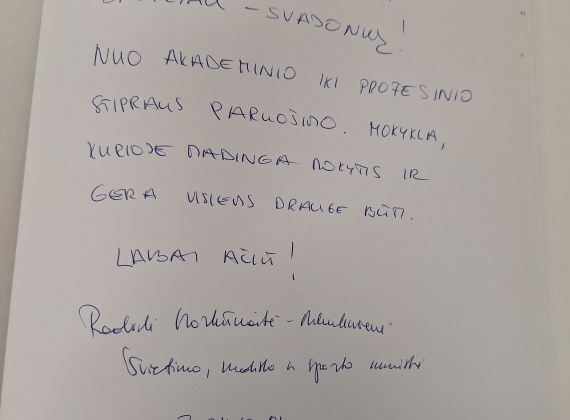 – SVAJONIŲ!
NUO AKADEMINIO IKI PROFESINIO
STIPRAUS PARUOŠIMO. MOKYKLA,
KURIOJE MADINGA MOKYTIS IR
GERA VISIEMS DRAUGE BŪTI.
LABAI AČIŪ!
Radvilė Morkūnaitė-Mikulėnienė
Švietimo, mokslo ir sporto ministrė